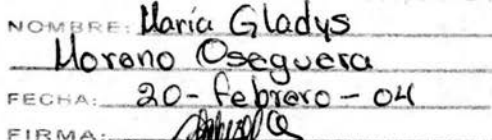 NOMBRE: María Gladys
Moreno Oseguera
FECHA: 20-febrero-04
FIRMA: